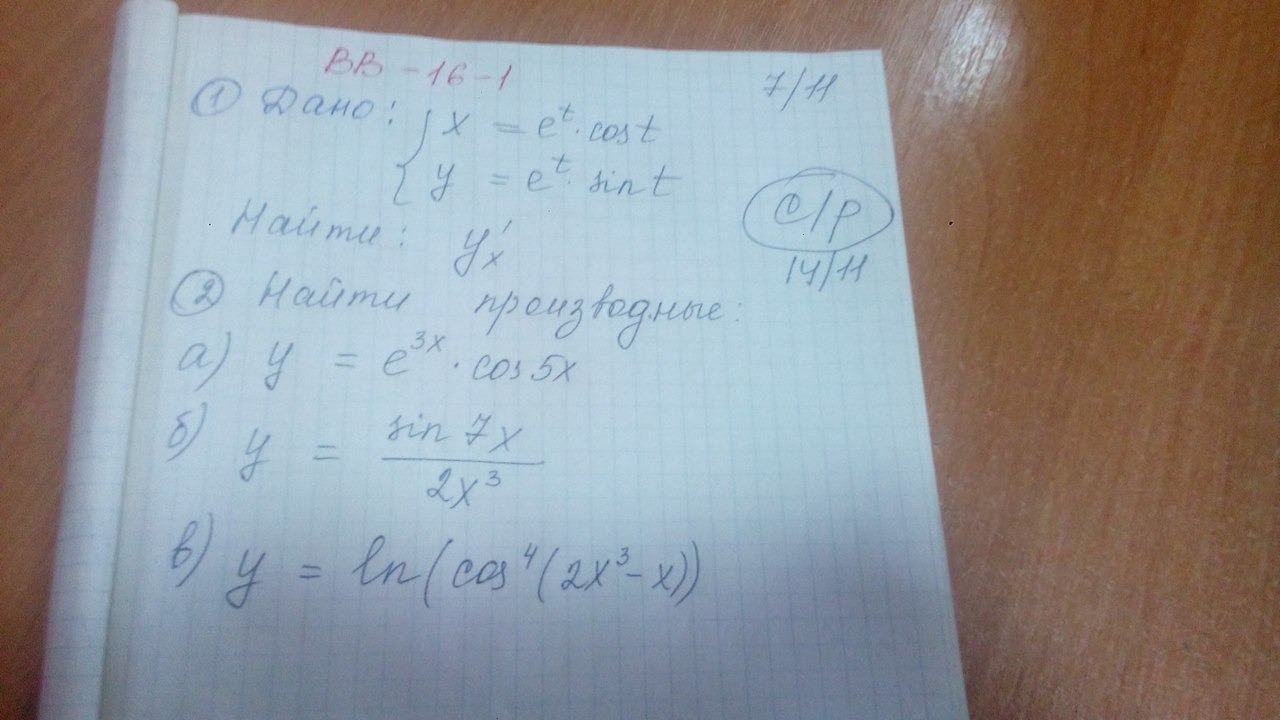 ВВ-16-1
7/11
① Дано: { x = e^t · cos t
y = e^t · sin t
Найти: y'ₓ
с/р
14/11
② Найти производные:
а) y = e^3x · cos 5x
б) y = sin 7x / 2x³
в) y = ln(cos⁴(2x³-x))